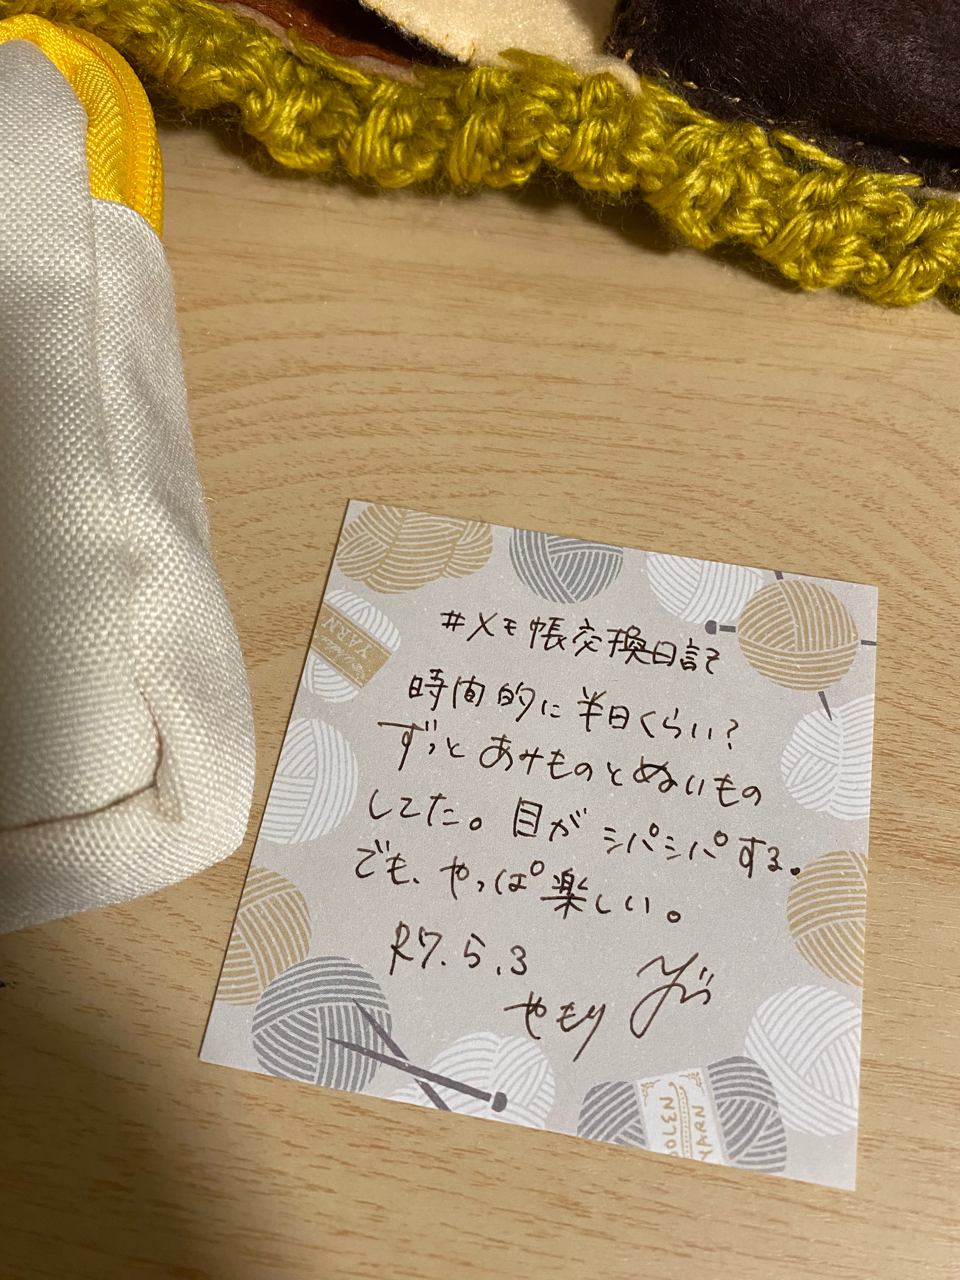 #メモ帳交換日記
時間的に半日くらい?
ずっとあみものとぬいもの
してた。目がシパシパする。
でも、やっぱ楽しい。
R7.5.3
やもり
YARN
OOLEN
YARN